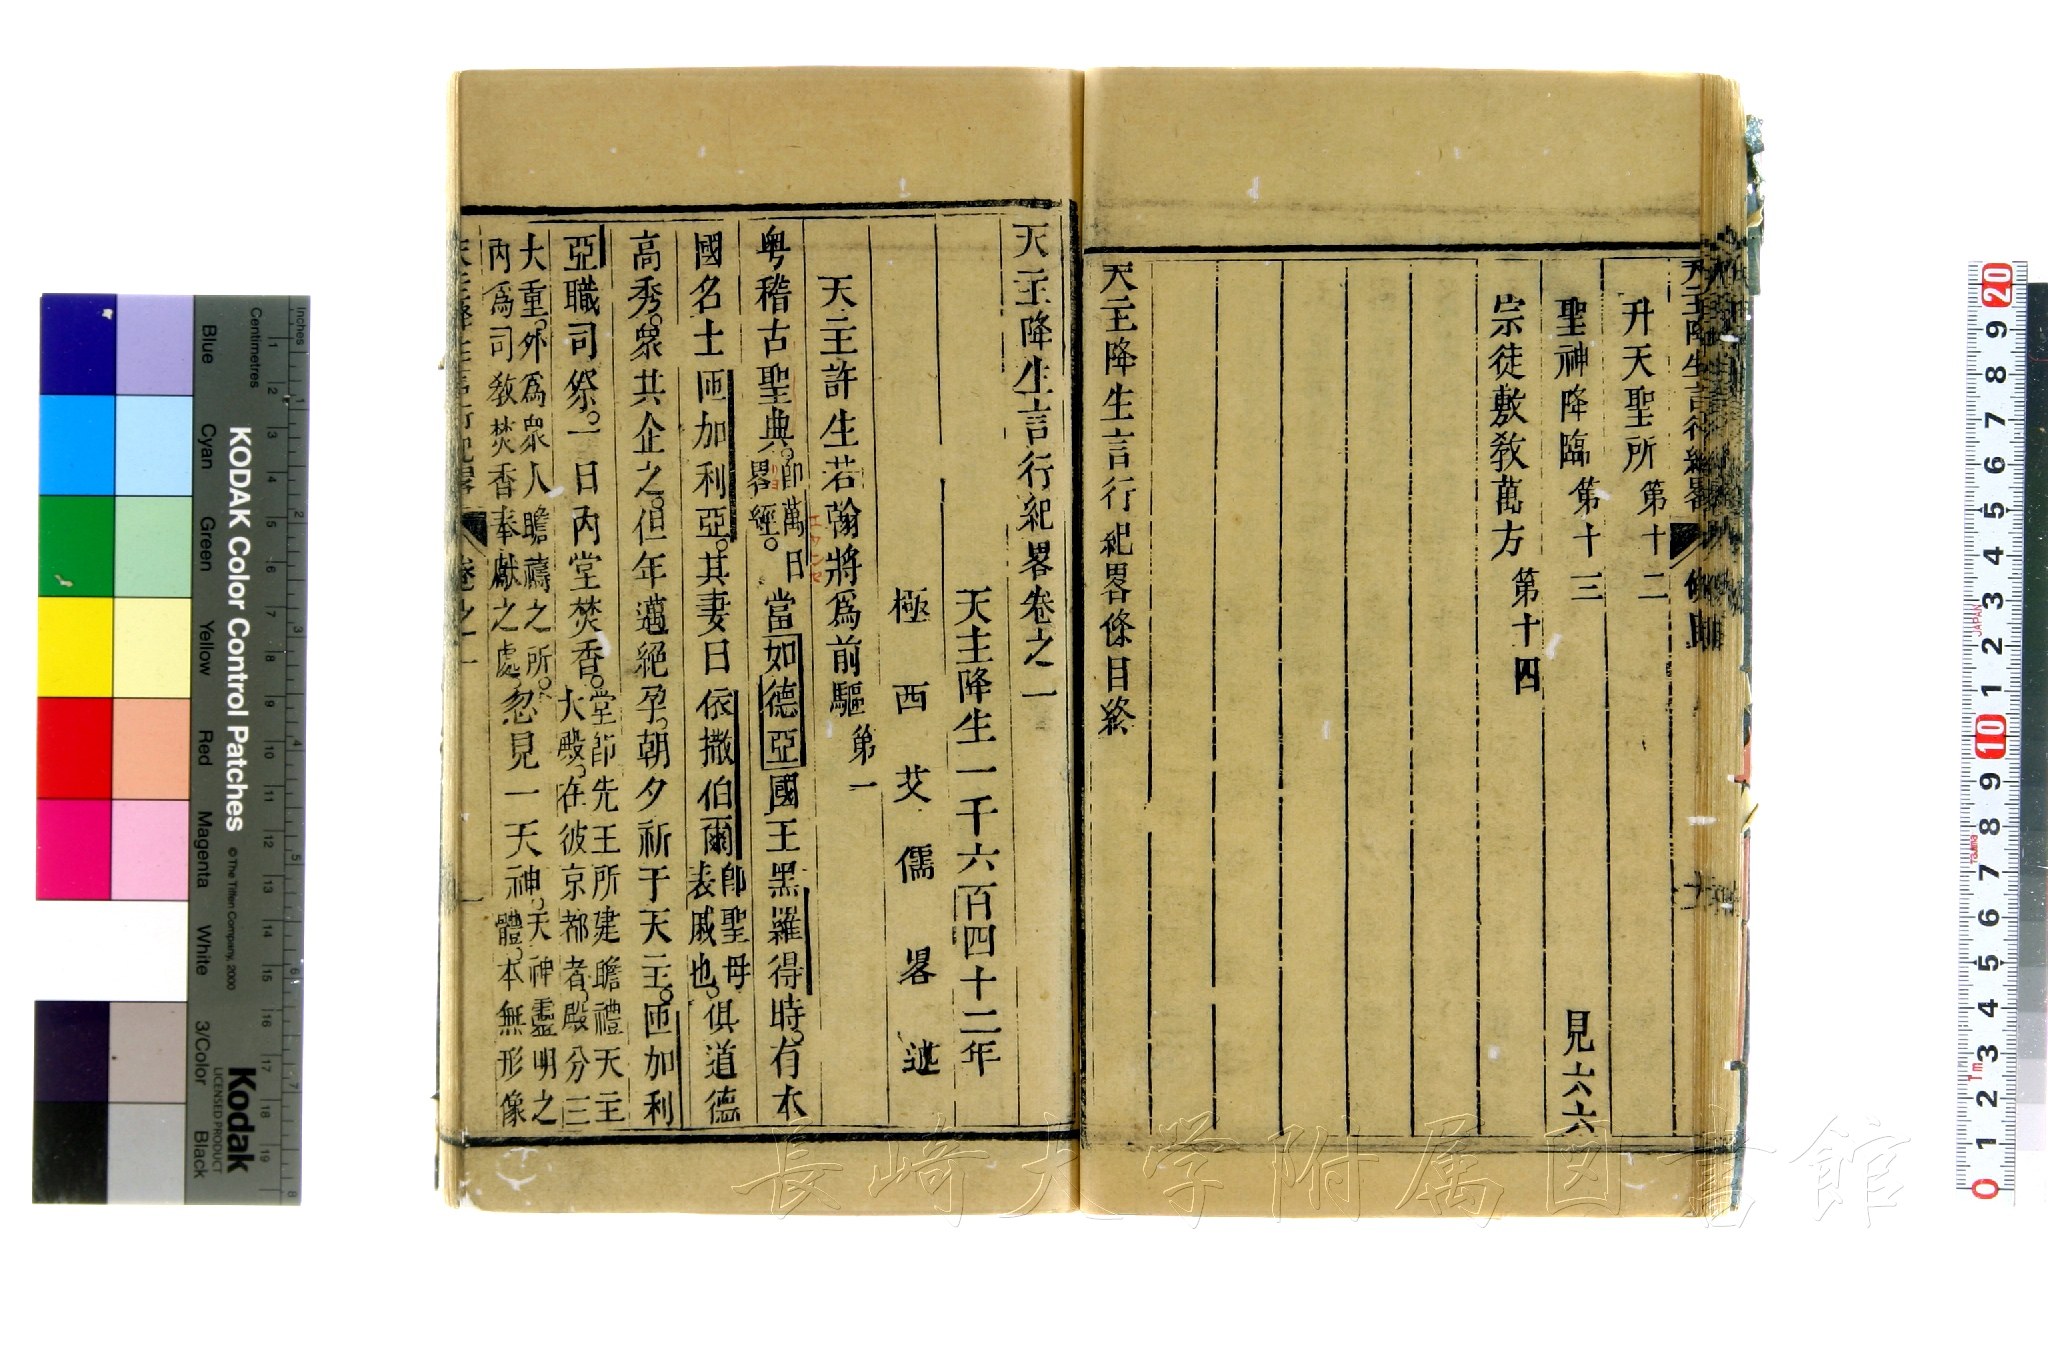 升天聖所 第十二
聖神降臨 第十三 見六六
宗徒敷教萬方 第十四
天主降生言行紀畧條目終
天主降生言行紀畧卷之一
天主降生一千六百四十二年
極西艾儒畧述
天主許生若翰將爲前驅 第一
粤稽古聖典。卽萬日畧經。當如德亞國王黑羅得時。有本
エワンセ
リヨ
國名士匝加利亞。其妻曰依撒伯爾卽聖母表戚也。俱道德
高秀。衆共企之。但年邁絕孕。朝夕祈于天主。匝加利
亞職司祭。一日內堂焚香。堂卽先王所建瞻禮天主大殿。在彼京都者。殿分三
大重。外爲衆人瞻禱之所。內爲司敎焚香奉獻之處。忽見一天神。天神靈明之體。本無形像
卷之一
KODAK Color Control Patches
© The Tiffen Company, 2000
Kodak
LICENSED PRODUCT
Inches
Centimetres
Blue
Cyan
Green
Yellow
Red
Magenta
White
3/Color
Black
JAPAN
Tajima
1m
長崎大学附属図書館